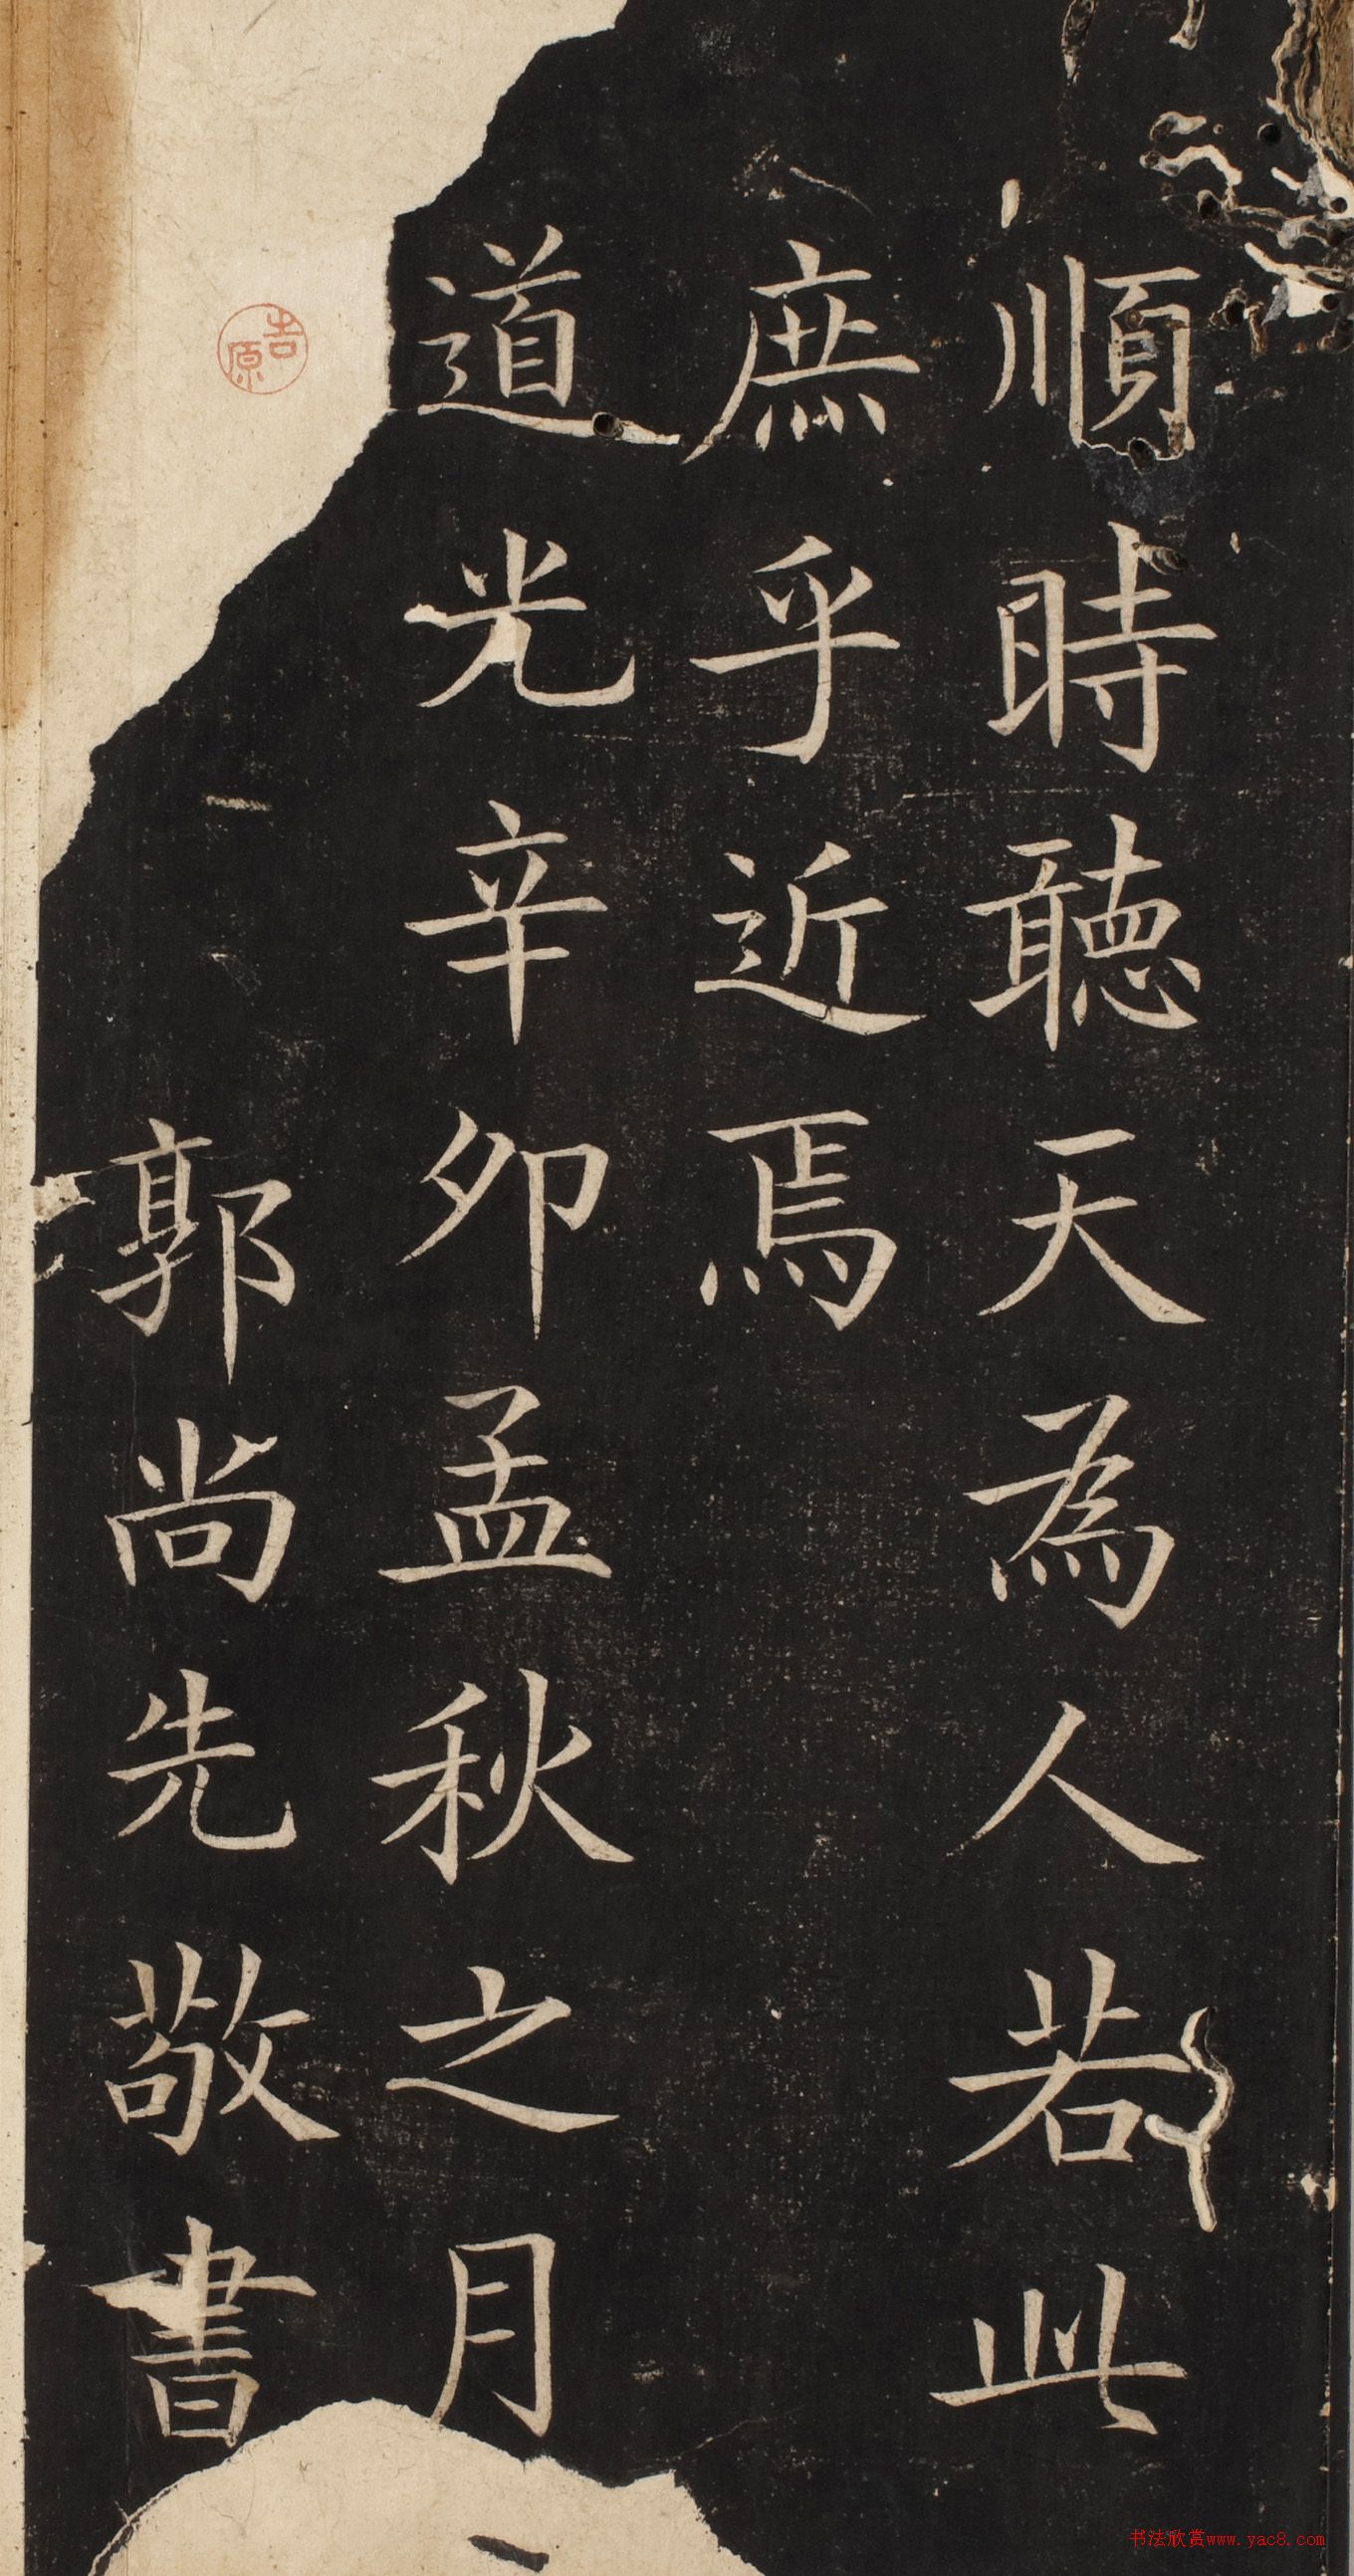 順時聽天為人若此
庶乎近焉
道光辛卯孟秋之月
郭尚先敬書
吉原
书法欣赏www.yac8.com